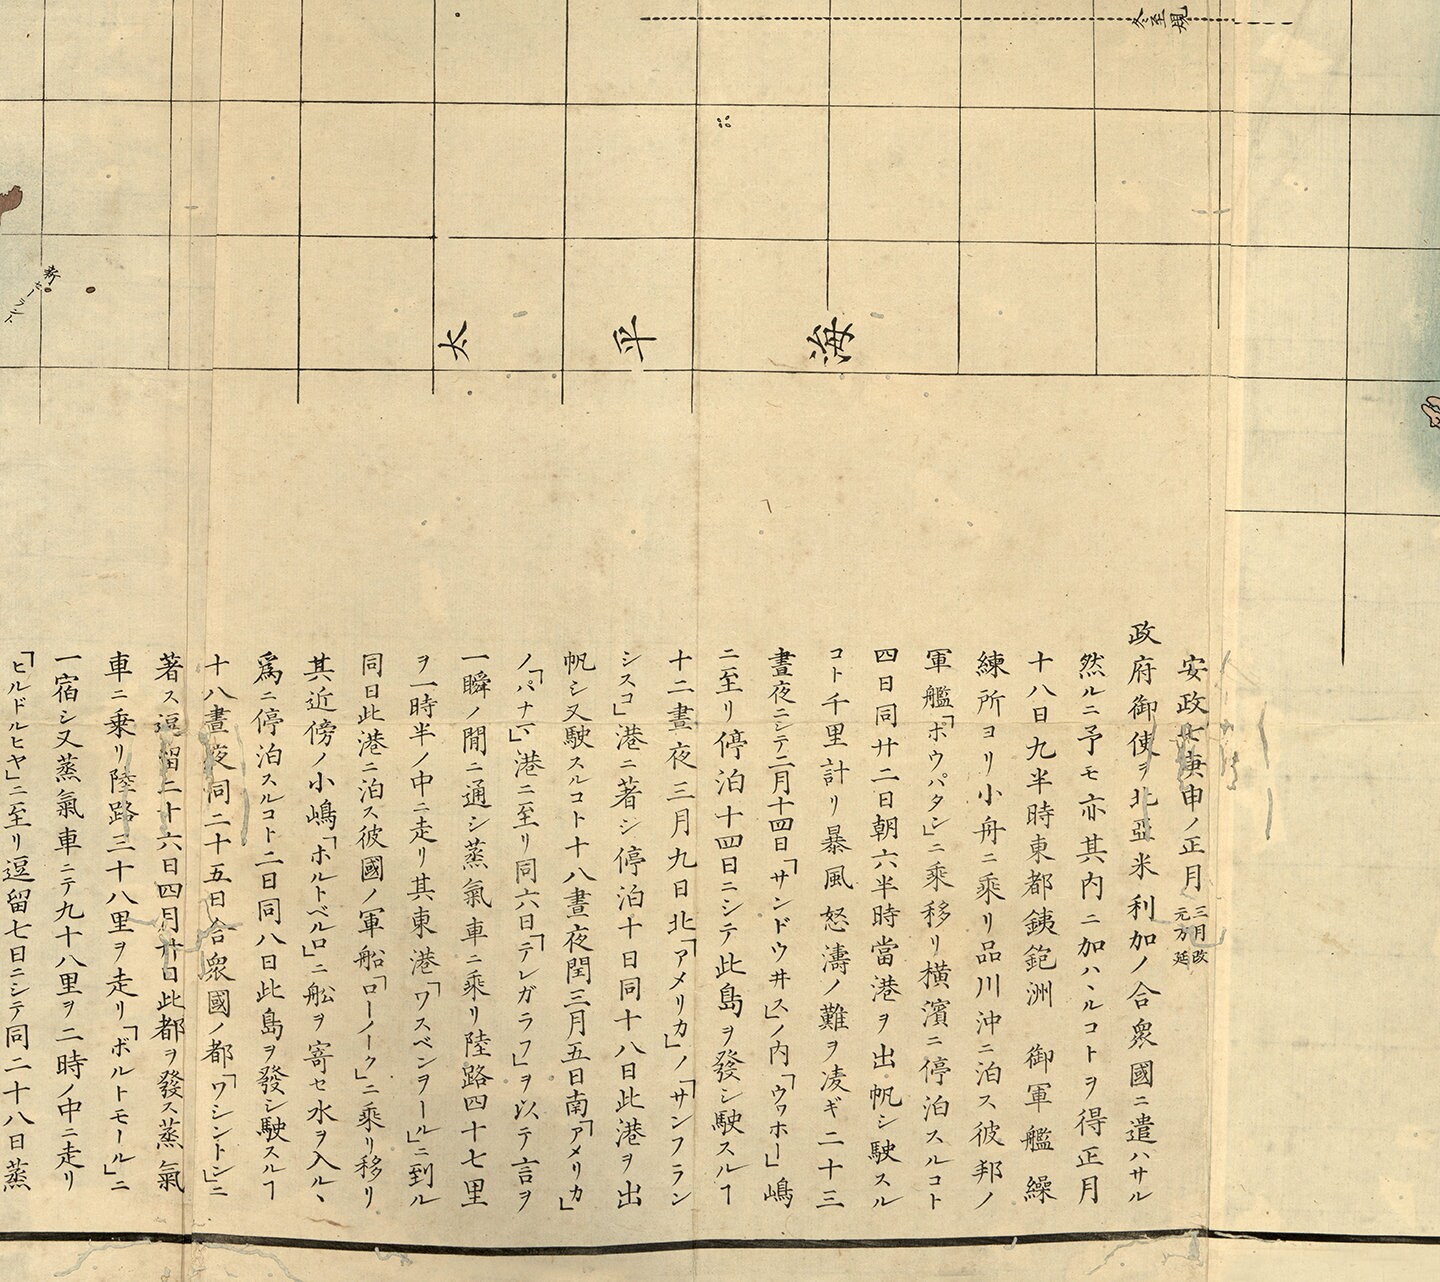 冬至規
太平海
安政七庚申ノ正月三月改元万延
政府御使ヲ北亞米利加ノ合衆國ニ遣ハサル
然ルニ予モ亦其内ニ加ハヽルコトヲ得正月
十八日九半時東都銕鉋洲 御軍艦繰
練所ヨリ小舟ニ乘リ品川沖ニ泊ス彼邦ノ
軍艦「ポウパタン」ニ乘移リ橫濱ニ停泊スルコト
四日同廿二日朝六半時當港ヲ出帆シ駛スル
コト千里計リ暴風怒濤ノ難ヲ凌ギ二十三
晝夜ニシテ二月十四日「サンドウ井ス」ノ内「ウワホー」嶋
ニ至リ停泊十四日ニシテ此島ヲ發シ駛スルヿ
十二晝夜三月九日北「アメリカ」ノ「サンフラン
シスコ」港ニ著シ停泊十日同十八日此港ヲ出
帆シ又駛スルコト十八晝夜閏三月五日南「アメリカ」
ノ「パナマ」港ニ至リ同六日「テレガラフ」ヲ以テ言ヲ
一瞬ノ間ニ通シ蒸氣車ニ乘リ陸路四十七里
ヲ一時半ノ中ニ走リ其東港「ワスベンヲール」ニ到ル
同日此港ニ泊ス彼國ノ軍船「ローノーク」ニ乘リ移リ
其近傍ノ小嶋「ホルトベルロ」ニ舩ヲ寄セ水ヲ入ルヽ
爲ニ停泊スルコト二日同八日此島ヲ發シ駛スルヿ
十八晝夜同二十五日合衆國ノ都「ワシントン」ニ
著ス逗留二十六日四月廿日此都ヲ發ス蒸氣
車ニ乘リ陸路三十八里ヲ走リ「ボルトモール」ニ
一宿シ又蒸氣車ニテ九十八里ヲ二時ノ中ニ走リ
「ヒルドルヒヤ」ニ至リ逗留七日ニシテ同二十八日蒸